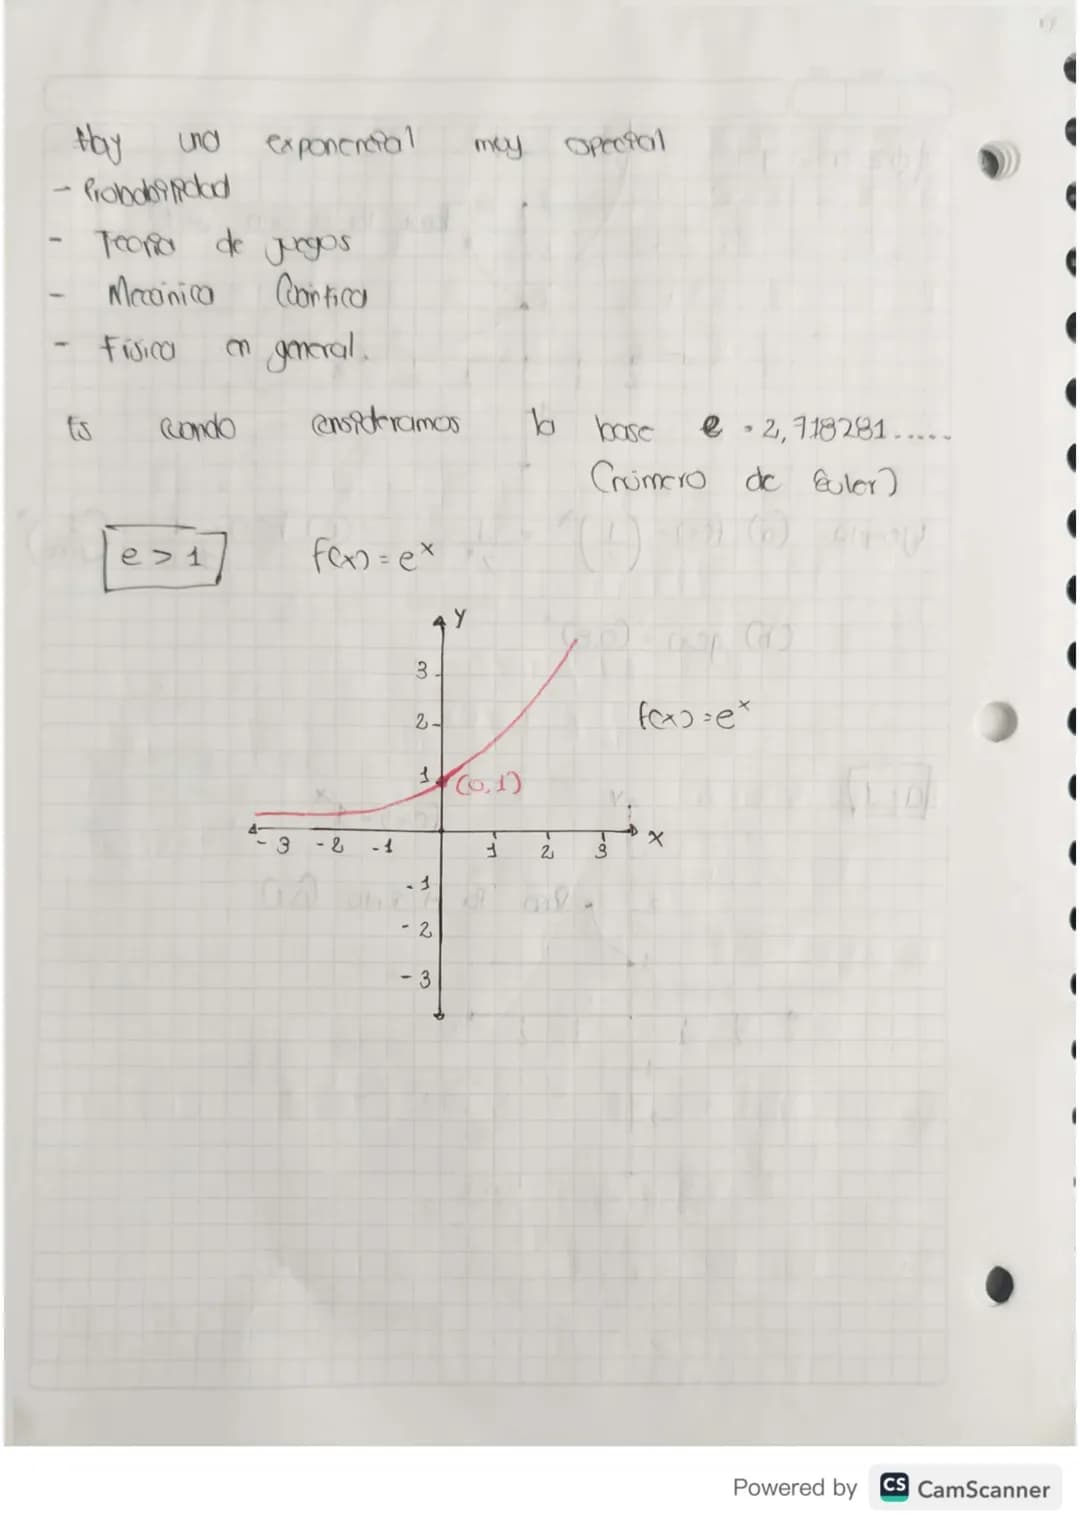 Hay una exponencial muy especial
- Probabilidad
- Teoría de juegos
- Mecánica Cuántica
- Física en general.
Es cuando consideramos la base e = 2,718281.....
(número de Euler)
e > 1 f(x) = e^x
Y
3
2
f(x) = e^x
1 (0,1)
X
-3 -2 -1 1 2 3
-1
-2
-3
Powered by CS CamScanner